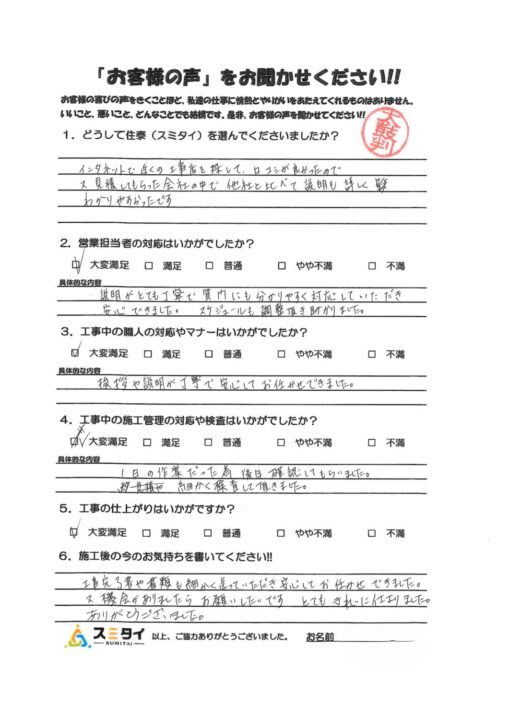 「お客様の声」をお聞かせください!!
お客様の喜びの声をきくことほど、私達の仕事に情熱とやりがいをあたえてくれるものはありません。
いいこと、悪いこと、どんなことでも結構です。是非、お客様の声を聞かせてください!!
太鼓判
1.どうして住泰(スミタイ)を選んでくださいましたか?
インタネットで近くの工事店を探して、口コミが良かったので
又見積してもらった会社の中で他社と比べて説明も詳しく
わかりやすかったです
2.営業担当者の対応はいかがでしたか?
☑ 大変満足 □ 満足 □ 普通 □ やや不満 □ 不満
具体的な内容
説明がとても丁寧で質問にも分かりやすく対応していただき
安心できました。 スケジュールも調整頂き助かりました。
3.工事中の職人の対応やマナーはいかがでしたか?
☑ 大変満足 □ 満足 □ 普通 □ やや不満 □ 不満
具体的な内容
挨拶や説明が丁寧で安心してお任せできました。
4.工事中の施工管理の対応や検査はいかがでしたか?
☑ 大変満足 □ 満足 □ 普通 □ やや不満 □ 不満
具体的な内容
1日の作業だった為後日確認してもらいました。
細かく検査して頂きました。
5.工事の仕上がりはいかがですか?
☑ 大変満足 □ 満足 □ 普通 □ やや不満 □ 不満
6.施工後の今のお気持ちを書いてください!!
工事完了書や書類も細かく送っていただき安心してお任せできました。
又機会がありましたらお願いしたいです とてもきれいに仕上りました。
ありがとうございました。
スミタイ 以上、ご協力ありがとうございました。 お名前
SUMITAI